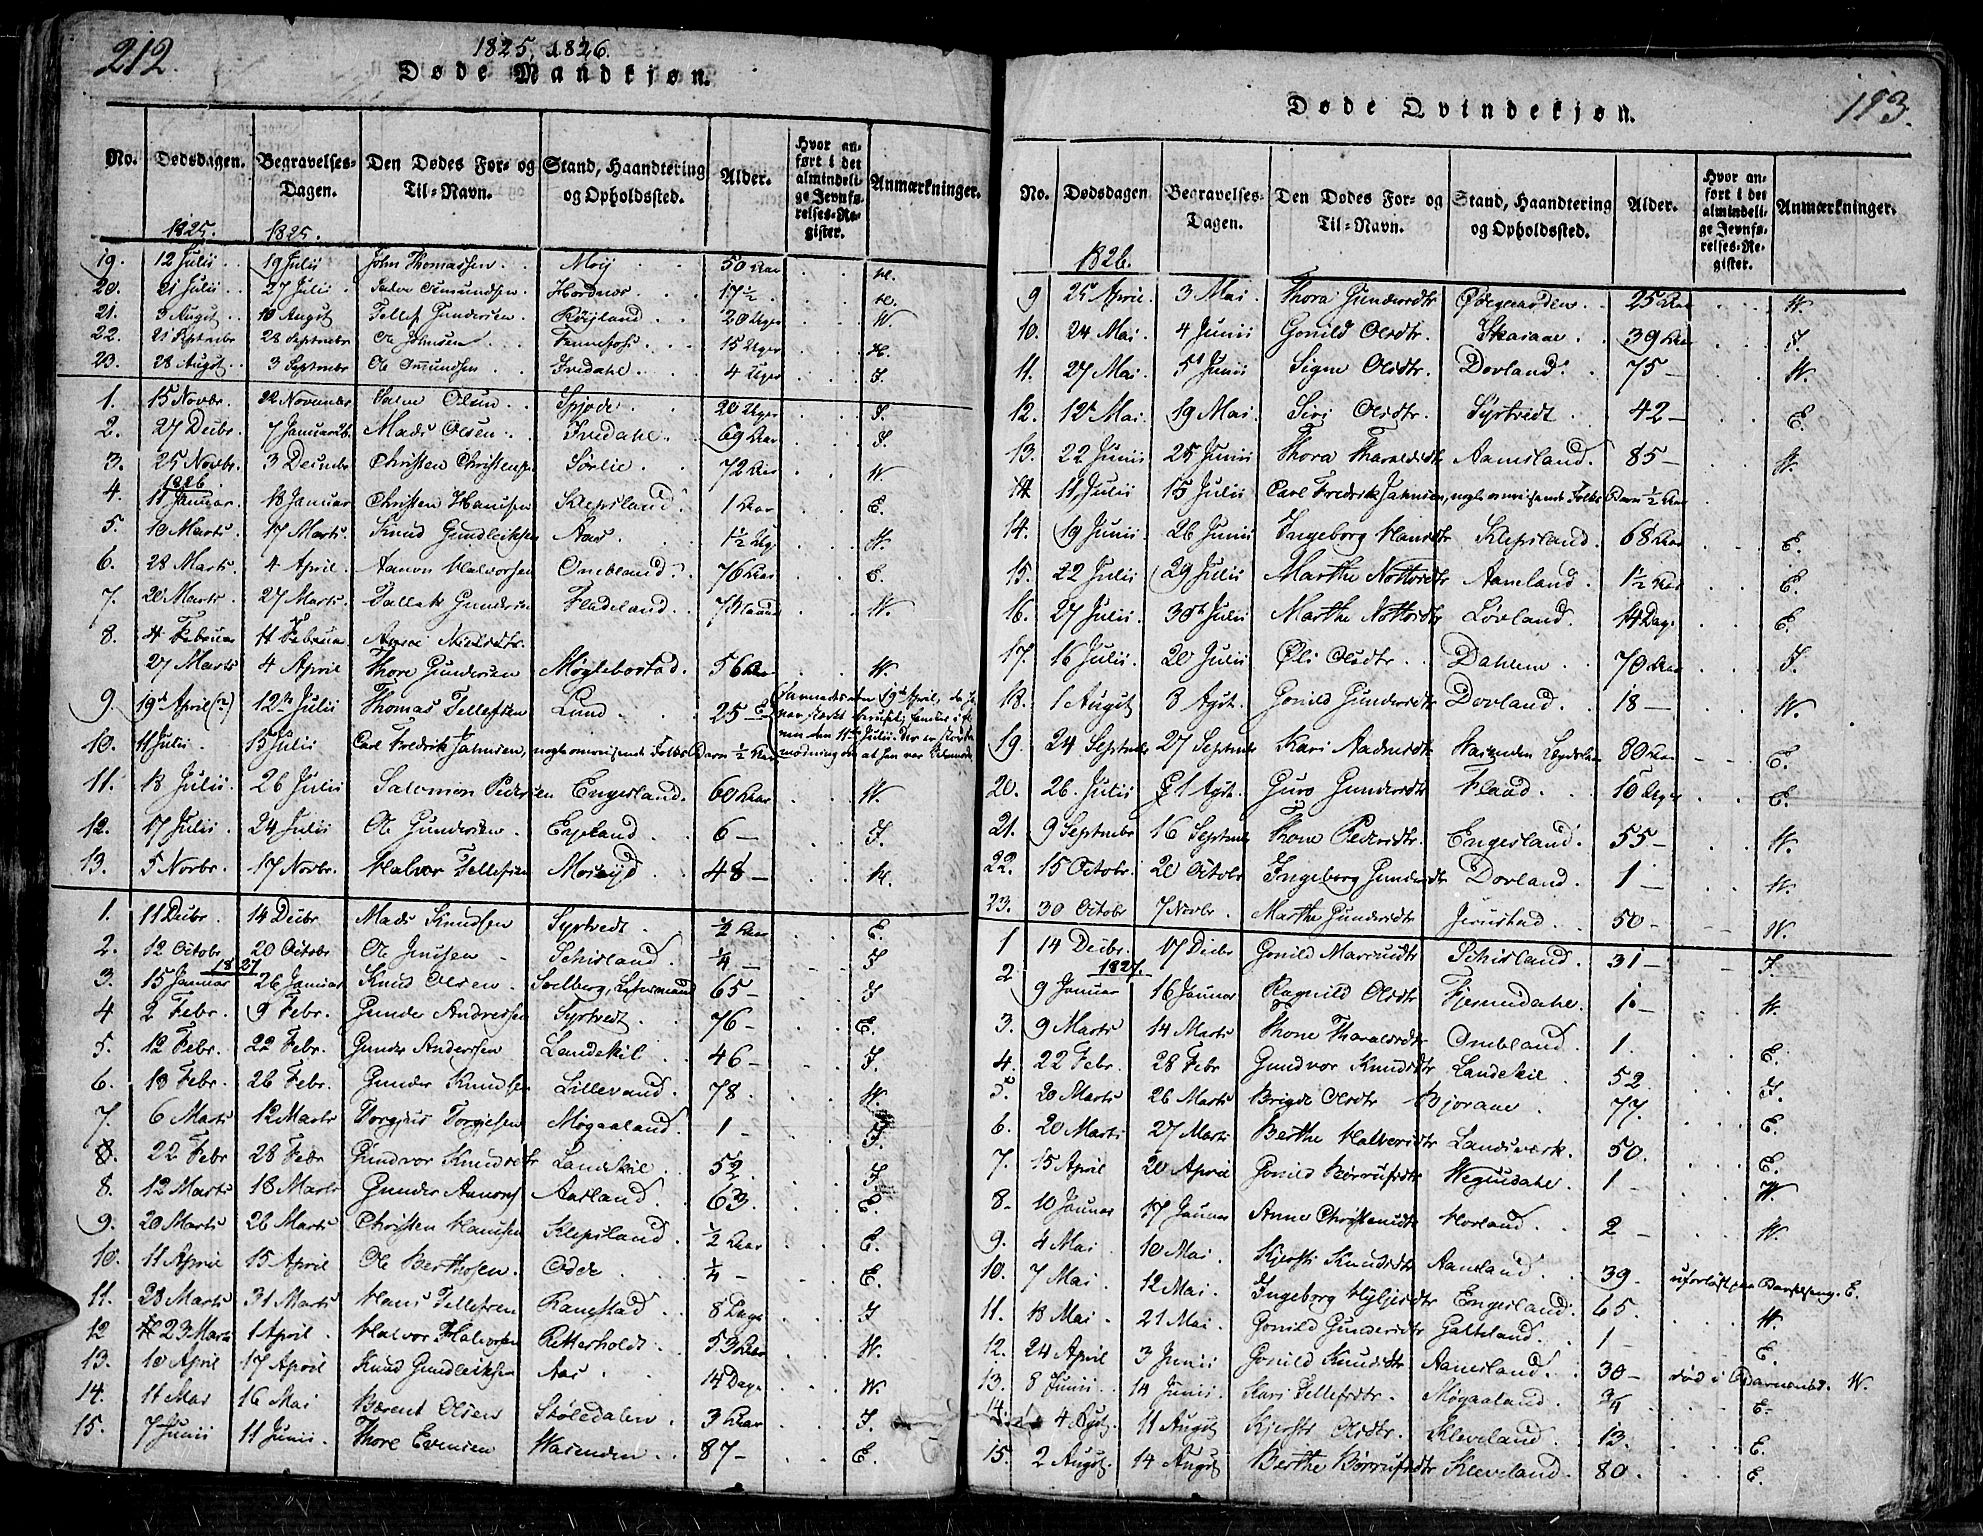 212.
1825, 1826.
Døde Mandkjøn.
No. Dødsdagen. Begravelses-Dagen. Den Dødes For- og Til-Navn. Stand, Haandtering og Opholdssted. Alder. Hvor anført i det almindelige Jevnførelses-Register. Anmærkninger.
1825. 1825.
19. 12 Julii 19 Julii John Thomassen Moij 50 Aar H.
20. 21 Julii 27 Julii Omundsen Hordnes 17½ H.
21. 3 Augst 10 Augst Tellef Gundersen Røijland 20 Uger W.
22. 21 Septembr 28 Septembr Ole Johnsen 15 Uger H.
23. 28 Augst 3 Septembr Ole Omundsen Ivedahl 4 Uger I.
1. 15 Novbr. 22 November Olsen Spjode 20 Uger I.
2. 27 Decbr. 7 Januar 26. Mads Olsen Ivedahl 69 Aar I.
3. 25 Novbr. 3 Decembr Christen Christensen Sørlie 72 Aar W.
1826
4. 11 Januar 18 Januar Christen Hansen Klepsland 1 Aar E.
5. 10 Marts 17 Marts Knud Gundleiksen Aas 1½ Ug. H.
6. 28 Marts 4 April Aanon Halvorsen Omland 76 Aar E.
7. 20 Marts 27 Marts Tallak Gundersen Fladeland W.
8. 4 Februar 11 Februar
27 Marts 4 April Thore Gundersen Møglebostad 56 Aar W.
9. 19de April (?) 12te Julii Thomas Tellefsen Lund 25 E. (Savnedes den 19de April,
10. 11 Julii 15 Julii Carl Fredrik Jahnsen, nogle omreisende Folks Barn ½ Aar
11. 18 Julii 26 Julii Salomon Pedersen Engesland 60 Aar W.
12. 17 Julii 24 Julii Ole Gundersen 6 — I.
13. 5 Novbr. 17 Novbr. Halvor Tellefsen 48 — H.
1. 11 Decbr. 14 Decbr Mads Knudsen Syrtvedt ½ Aar E.
2. 12 Octobr 20 Octobr Ole Jensen Schisland ¼ — I
1827
3. 15 Januar 26 Januar Knud Olsen Solberg, 65 — I
4 2 Febr. 9 Febr. Gunder Andersen Syrtvedt 76 — E.
5. 12 Febr. 22 Febr. Gunder Anderssen Landeskil 46 — I.
6. 18 Febr. 26 Febr. Gunder Knudsen Lillesand 78. W.
7. 6 Marts 12 Marts Torgius Torgiesen Møgaaland. 1 — I.
8. 22 Febr 28 Febr Gundvor Knudsdtr Landeskil 52. I
8. 12 Marts 18 Marts Gunder Aanons Aasland 63. E.
9. 20 Marts 26 Marts Christen Hansen Klepsland ½ Aar E.
10. 11 April 15 April Ole Berthosen. Odde ¼ — E.
11. 23 Marts 31 Marts Hans Tellefsen Ramstad 8 Dage I
12 23 Marts 1 April Halvor Halvorsen Retterholdt 53 Aar W.
13. 10 April 17 April Knud Gundleiksen Aas 14 Dage W.
14. 11 Mai 16 Mai Bærent Olsen Støledalen 3 Aar I
15. 7 Junii 11 Junii. Thore Evensen Vasenden 87 — E.
193.
Døde Qvindekjøn.
No. Dødsdagen Begravelses-Dagen. Den Dødes For- og Til-Navn. Stand, Haandtering og Opholdssted. Alder. Hvor anført i det almindelige Jevnførelses-Register. Anmærkninger.
1826.
9 25 April. 3 Mai. Thora Gundersdtr Ødegaarden 25 Aar W.
10. 24 Mai 4 Junii Gonild Olsdtr. Skaiaae 39 Aar I.
11. 27 Mai 5 Junii Signe Olsdtr. Dovland 75 — W.
12. 12 Mai 19 Mai Siri Olsdtr. Syrtvedt 42 — E.
13. 22 Junii 25 Junii Thora Tharaldsdtr Aamsland 85 — W.
14 11 Julii 15 Julii Carl Fredrik Jahnsen, nogle omreisende Folks Barn ½ Aar
14. 19 Junii 26 Junii Ingeborg Hansdtr Klepsland 68 Aar E.
15. 22 Julii 29 Julii Marthe Nottosdtr Aamland 1½ Aar E.
16. 27 Julii 30te Julii Marthe Nottosdtr Løvland 14 Dage E.
17. 16 Julii. 20 Julii Oli Olsdtr Dahlen 70 Aar I.
18. 1 Augst 8 Agst. Gonild Gundersdtr Dovland 18 — W.
19. 24 Septembr 27 Septembr Kari Aadnesdtr Vasenden 80 Aar E.
20. 26. Julii 1 Agst. Guro Gundersdtr Flaad 10 Uger E.
21. 9 Septembr 16 Septembr Thone Pedersdtr. Engesland 55 — W.
22. 15 Octobr. 20 Octobr Ingeborg Gundersdtr Dovland. 1 — W.
23. 30 Octobr 7 Novbr. Marthe Gundersdtr 50 — W.
1 14 Decbr. 17 Decbr Gonild Schisland. 31 — I.
1827.
2 9 Januar 16 Januar Ragnild Olsdtr 1. — W.
3. 9 Marts 14 Marts Thone Tharaldsdtr Omland 1. E.
4. 22 Febr. 28 Febr Gundvor Knudsdtr Landeskil 52. I.
5. 20 Marts 26 Marts Brigde Olsdtr Bjorane 77. E.
6. 20 Marts 27 Marts Berthe Halvorsdtr Landsverk. 50. E.
7. 15 April 20 April Gonild Børrufsdtr Wegusdahl. 1 — W
8. 10 Januar 17 Januar Anne Christensdtr Hovland 2 — W.
9. 4 Mai 10 Mai Kjersti Knudsdtr Aamland 39. uforløst paa Barselseng. E.
10. 7 Mai 12 Mai. Ingeborg Engesland 65. W.
11. 18 Mai. 21 Mai. Gonild Gundersdtr Galteland 1 — E.
12. 24 April 3 Junii Gonild Knudsdtr Aamesland 30 — død i Barnsnød. W.
13. 8 Junii 14 Junii. Kari Tellefsdtr. Møgaaland ¾ E.
14. 4 Agst. 11 Augst Kjersti Olsdtr. Kleveland 13. E.
15. 2 Augst. 14 Augst Berthe Børrufsdtr Kleveland 80. E.